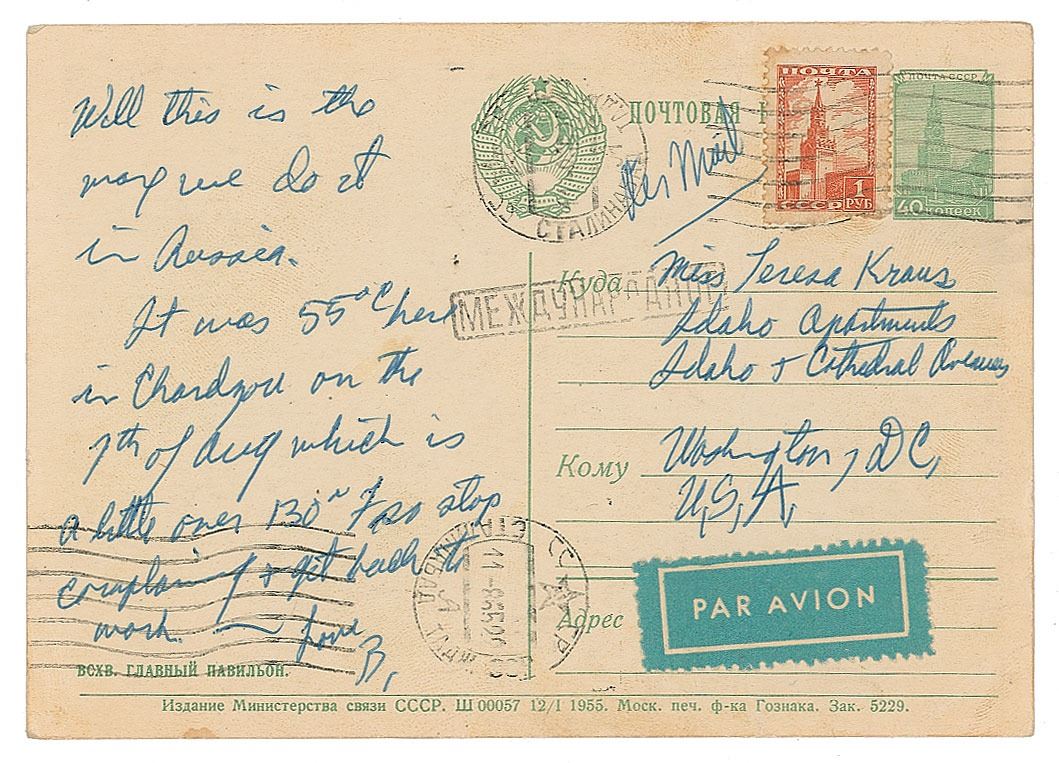 Well this is the
way we do it
in Russia.
It was 55°C here
in Chardzou on the
7th of Aug which is
a little over 130° F so stop
complaining & get back to
work. — Love
B,
ВСХВ. ГЛАВНЫЙ ПАВИЛЬОН.
ПОЧТОВАЯ К
Air Mail
ПОЧТА
1
РУБ
СССР
ПОЧТА СССР
40 КОПЕЕК
СТАЛИНАБАД
МЕЖДУНАРОДНОЕ
Куда
Miss Teresa Kraus
Idaho Apartments
Idaho & Cathedral Avenues
Кому
Washington, DC,
U,S,A,
Адрес
PAR AVION
СТАЛИНАБАД
Издание Министерства связи СССР. Ш 00057 12/I 1955. Моск. печ. ф-ка Гознака. Зак. 5229.